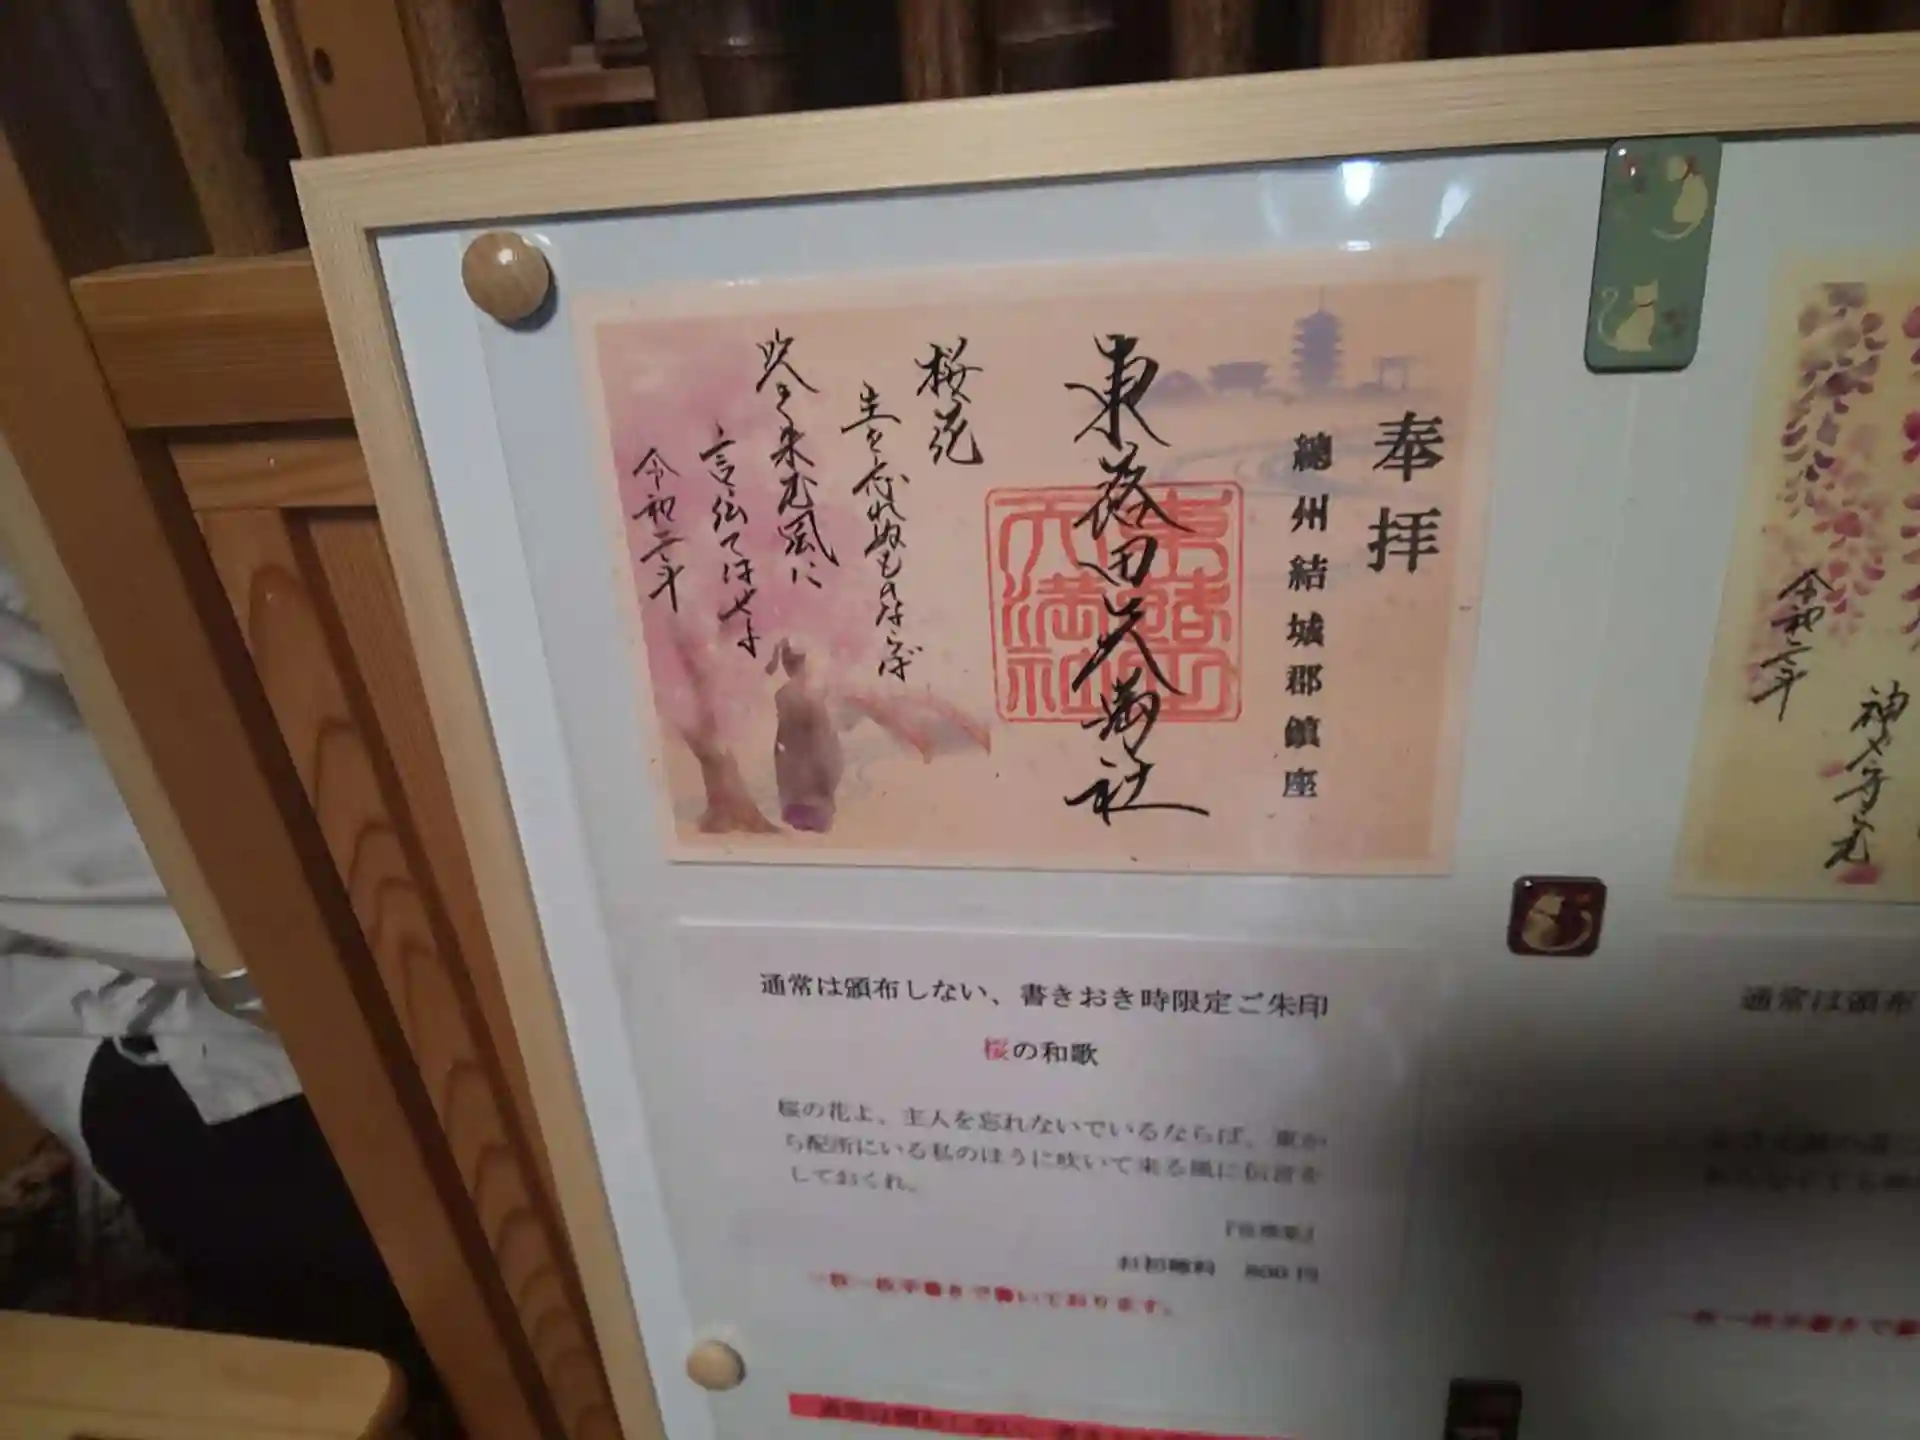 奉拝
總州結城郡鎮座
東蕗田天満社
東蕗田天満社
桜花
主を忘れぬものならば
吹き来む風に
言伝てはせよ
令和二年
通常は頒布しない、書きおき時限定ご朱印
桜の和歌
桜の花よ、主人を忘れないでいるならば、東か
ら配所にいる私のほうに吹いて来る風に伝言を
しておくれ。
お初穂料 800円
一枚一枚手書きで書いております。
令和二年
通常は頒布